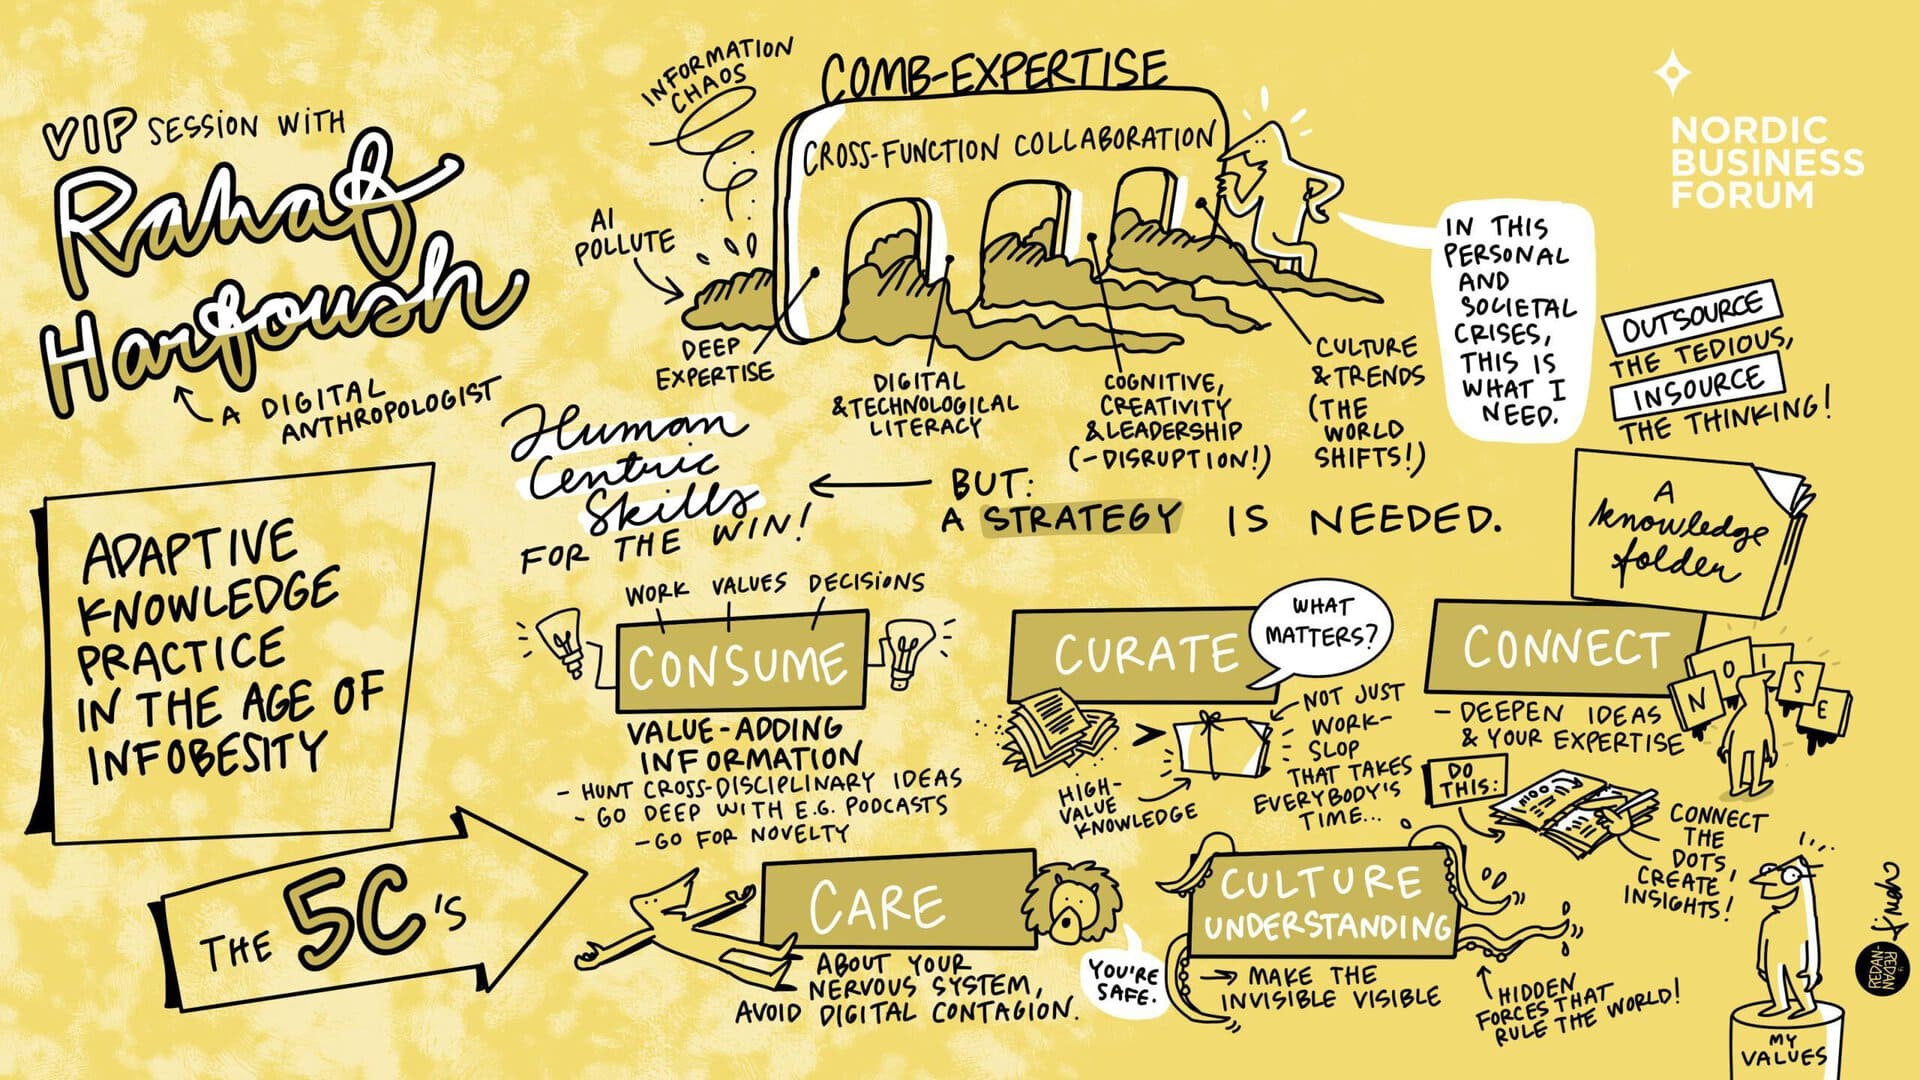 VIP SESSION WITH
Rahaf
Harfoush
A DIGITAL
ANTHROPOLOGIST
INFORMATION
CHAOS
AI
POLLUTE
COMB-EXPERTISE
CROSS-FUNCTION COLLABORATION
DEEP
EXPERTISE
DIGITAL
& TECHNOLOGICAL
LITERACY
COGNITIVE,
CREATIVITY
& LEADERSHIP
(-DISRUPTION!)
CULTURE
& TRENDS
(THE
WORLD
SHIFTS!)
IN THIS
PERSONAL
AND
SOCIETAL
CRISES,
THIS IS
WHAT I
NEED.
NORDIC
BUSINESS
FORUM
OUTSOURCE
THE TEDIOUS,
INSOURCE
THE THINKING!
Human
Centric
Skills
FOR THE WIN!
BUT:
A STRATEGY IS NEEDED.
A
knowledge
folder
ADAPTIVE
KNOWLEDGE
PRACTICE
IN THE AGE OF
INFOBESITY
THE 5C'S
WORK VALUES DECISIONS
CONSUME
VALUE-ADDING
INFORMATION
- HUNT CROSS-DISCIPLINARY IDEAS
- GO DEEP WITH E.G. PODCASTS
- GO FOR NOVELTY
CURATE
WHAT
MATTERS?
>
HIGH-
VALUE
KNOWLEDGE
NOT JUST
WORK-
SLOP
THAT TAKES
EVERYBODY'S
TIME...
CONNECT
- DEEPEN IDEAS
& YOUR EXPERTISE
NOISE
DO
THIS:
CONNECT
THE
DOTS,
CREATE
INSIGHTS!
CARE
ABOUT YOUR
NERVOUS SYSTEM,
AVOID DIGITAL CONTAGION.
YOU'RE
SAFE.
CULTURE
UNDERSTANDING
→ MAKE THE
INVISIBLE VISIBLE
HIDDEN
FORCES THAT
RULE THE WORLD!
MY
VALUES
REDAN-
REDAN